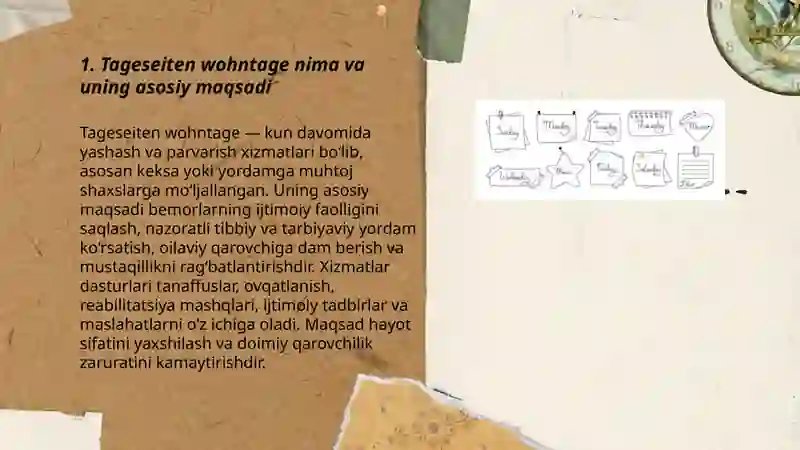 1. Tageseiten wohntage nima va
uning asosiy maqsadi
Tageseiten wohntage — kun davomida
yashash va parvarish xizmatlari bo'lib,
asosan keksa yoki yordamga muhtoj
shaxslarga mo'ljallangan. Uning asosiy
maqsadi bemorlarning ijtimoiy faolligini
saqlash, nazoratli tibbiy va tarbiyaviy yordam
ko'rsatish, oilaviy qarovchiga dam berish va
mustaqillikni rag'batlantirishdir. Xizmatlar
dasturlari tanaffuslar, ovqatlanish,
reabilitatsiya mashqlari, ijtimoiy tadbirlar va
maslahatlarni o'z ichiga oladi. Maqsad hayot
sifatini yaxshilash va doimiy qarovchilik
zaruratini kamaytirishdir.
Sunday Monday Tuesday Thursday
Wednesday Friday Saturday